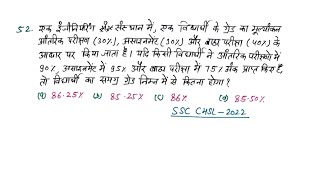 52. एक इंजीनियरिंग संस्थान में, एक विद्यार्थी के ग्रेड का मूल्यांकन
आंतरिक परीक्षा (30%), असाइनमेंट (30%) और बाह्य परीक्षा (40%) के
आधार पर किया जाता है। यदि किसी विद्यार्थी ने आंतरिक परीक्षा में
90%, असाइनमेंट में 95% और बाह्य परीक्षा में 75% अंक प्राप्त किए हैं,
तो विद्यार्थी का समग्र ग्रेड निम्न में से कितना होगा?
(a) 86.25% (b) 85.25% (c) 86% (d) 85.50%
SSC CHSL-2022